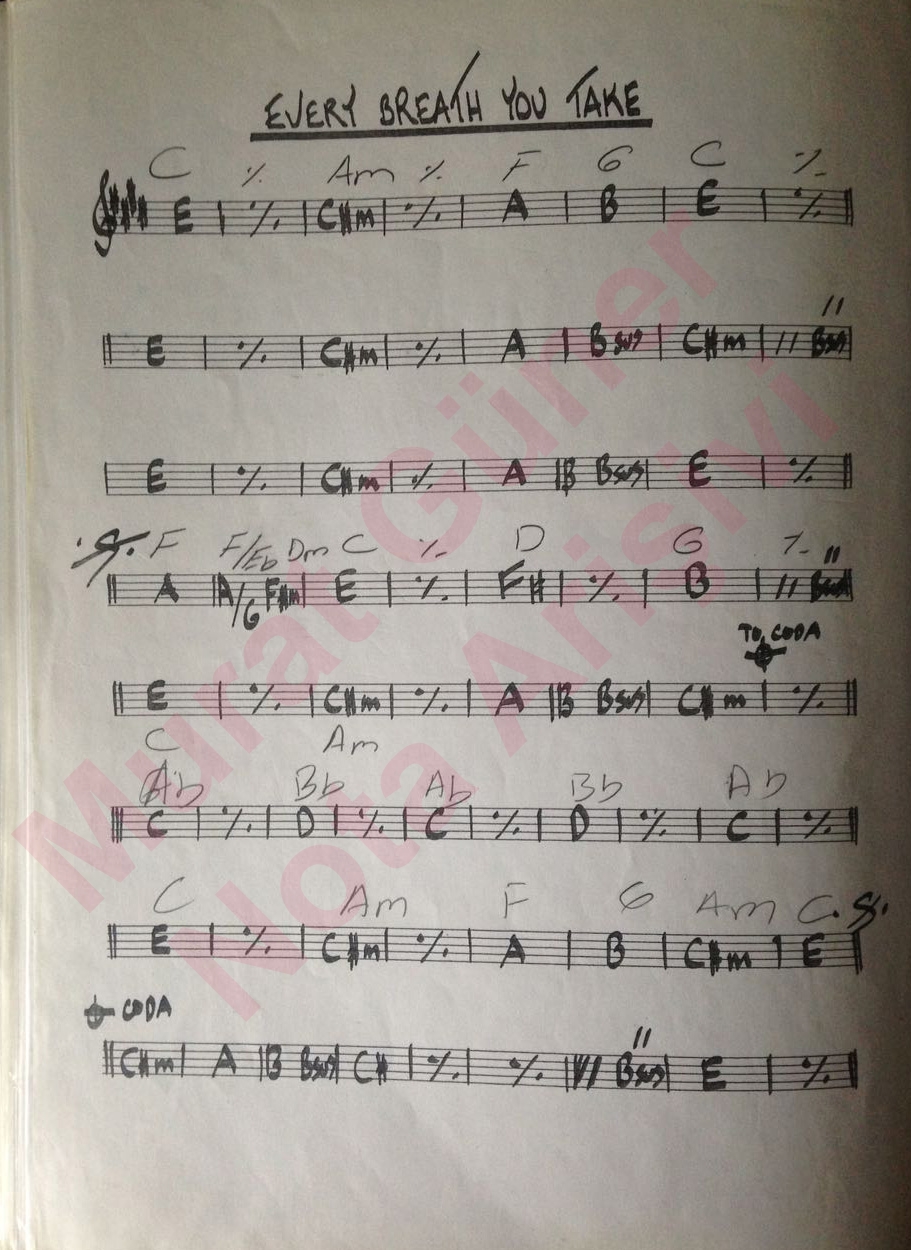 EVERY BREATH YOU TAKE
C % Am % F G C %
E | % | C#m | % | A | B | E | %
//
E | % | C#m | % | A | Bsus | C#m | // Bsus
E | % | C#m | % | A | B Bsus | E | %
F F/Eb Dm C % D G % //
A | A/G F#m | E | % | F# | % | B | // Bsus
TO CODA
E | % | C#m | % | A | B Bsus | C#m | %
C Am
Ab Bb Ab Bb Ab
C | % | D | % | C | % | D | % | C | %
C Am F G Am C
E | % | C#m | % | A | B | C#m | E
CODA
//
C#m | A | B Bsus | C# | % | % | // Bsus | E | %
Murat Güner
Nota Arisivi